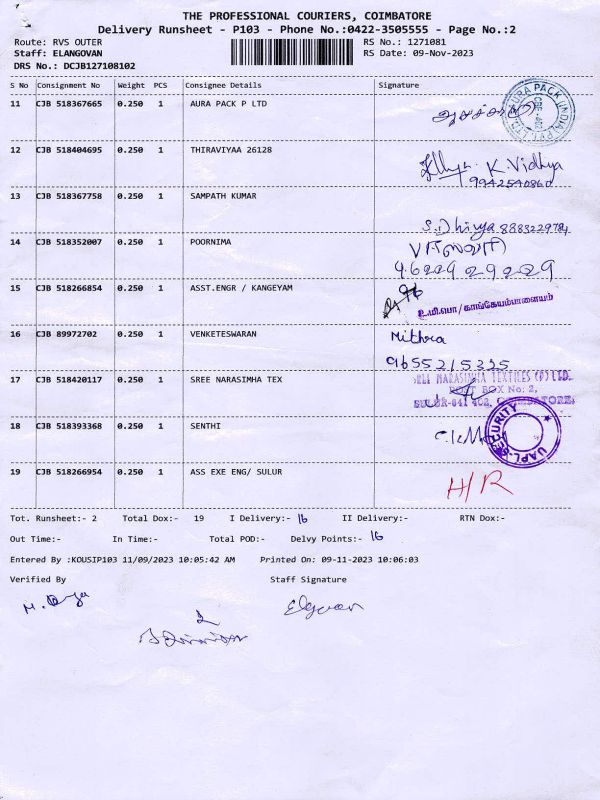 THE PROFESSIONAL COURIERS, COIMBATORE
Delivery Runsheet - P103 - Phone No.:0422-3505555 - Page No.:2
Route: RVS OUTER RS No.: 1271081
Staff: ELANGOVAN RS Date: 09-Nov-2023
DRS No.: DCJB127108102
S No Consignment No Weight PCS Consignee Details Signature
11 CJB 518367665 0.250 1 AURA PACK P LTD
12 CJB 518404695 0.250 1 THIRAVIYAA 26128
K. Vidhya
9942540860
13 CJB 518367758 0.250 1 SAMPATH KUMAR
S. Dhivya
14 CJB 518352007 0.250 1 POORNIMA
15 CJB 518266854 0.250 1 ASST.ENGR / KANGEYAM
உ.மி.பொ/காங்கேயம்பாளையம்
16 CJB 89972702 0.250 1 VENKETESWARAN Mithra
9655215325
17 CJB 518420117 0.250 1 SREE NARASIMHA TEX
SREE NARASIMHA TEXTILES (P) LTD.
POST BOX No: 2,
SULUR-641 402, COIMBATORE
18 CJB 518393368 0.250 1 SENTHI
SECURITY
UAPL
19 CJB 518266954 0.250 1 ASS EXE ENG/ SULUR
H/R
Tot. Runsheet:- 2 Total Dox:- 19 I Delivery:- 16 II Delivery:- RTN Dox:-
Out Time:- In Time:- Total POD:- Delvy Points:- 16
Entered By :KOUSIP103 11/09/2023 10:05:42 AM Printed On: 09-11-2023 10:06:03
Verified By Staff Signature